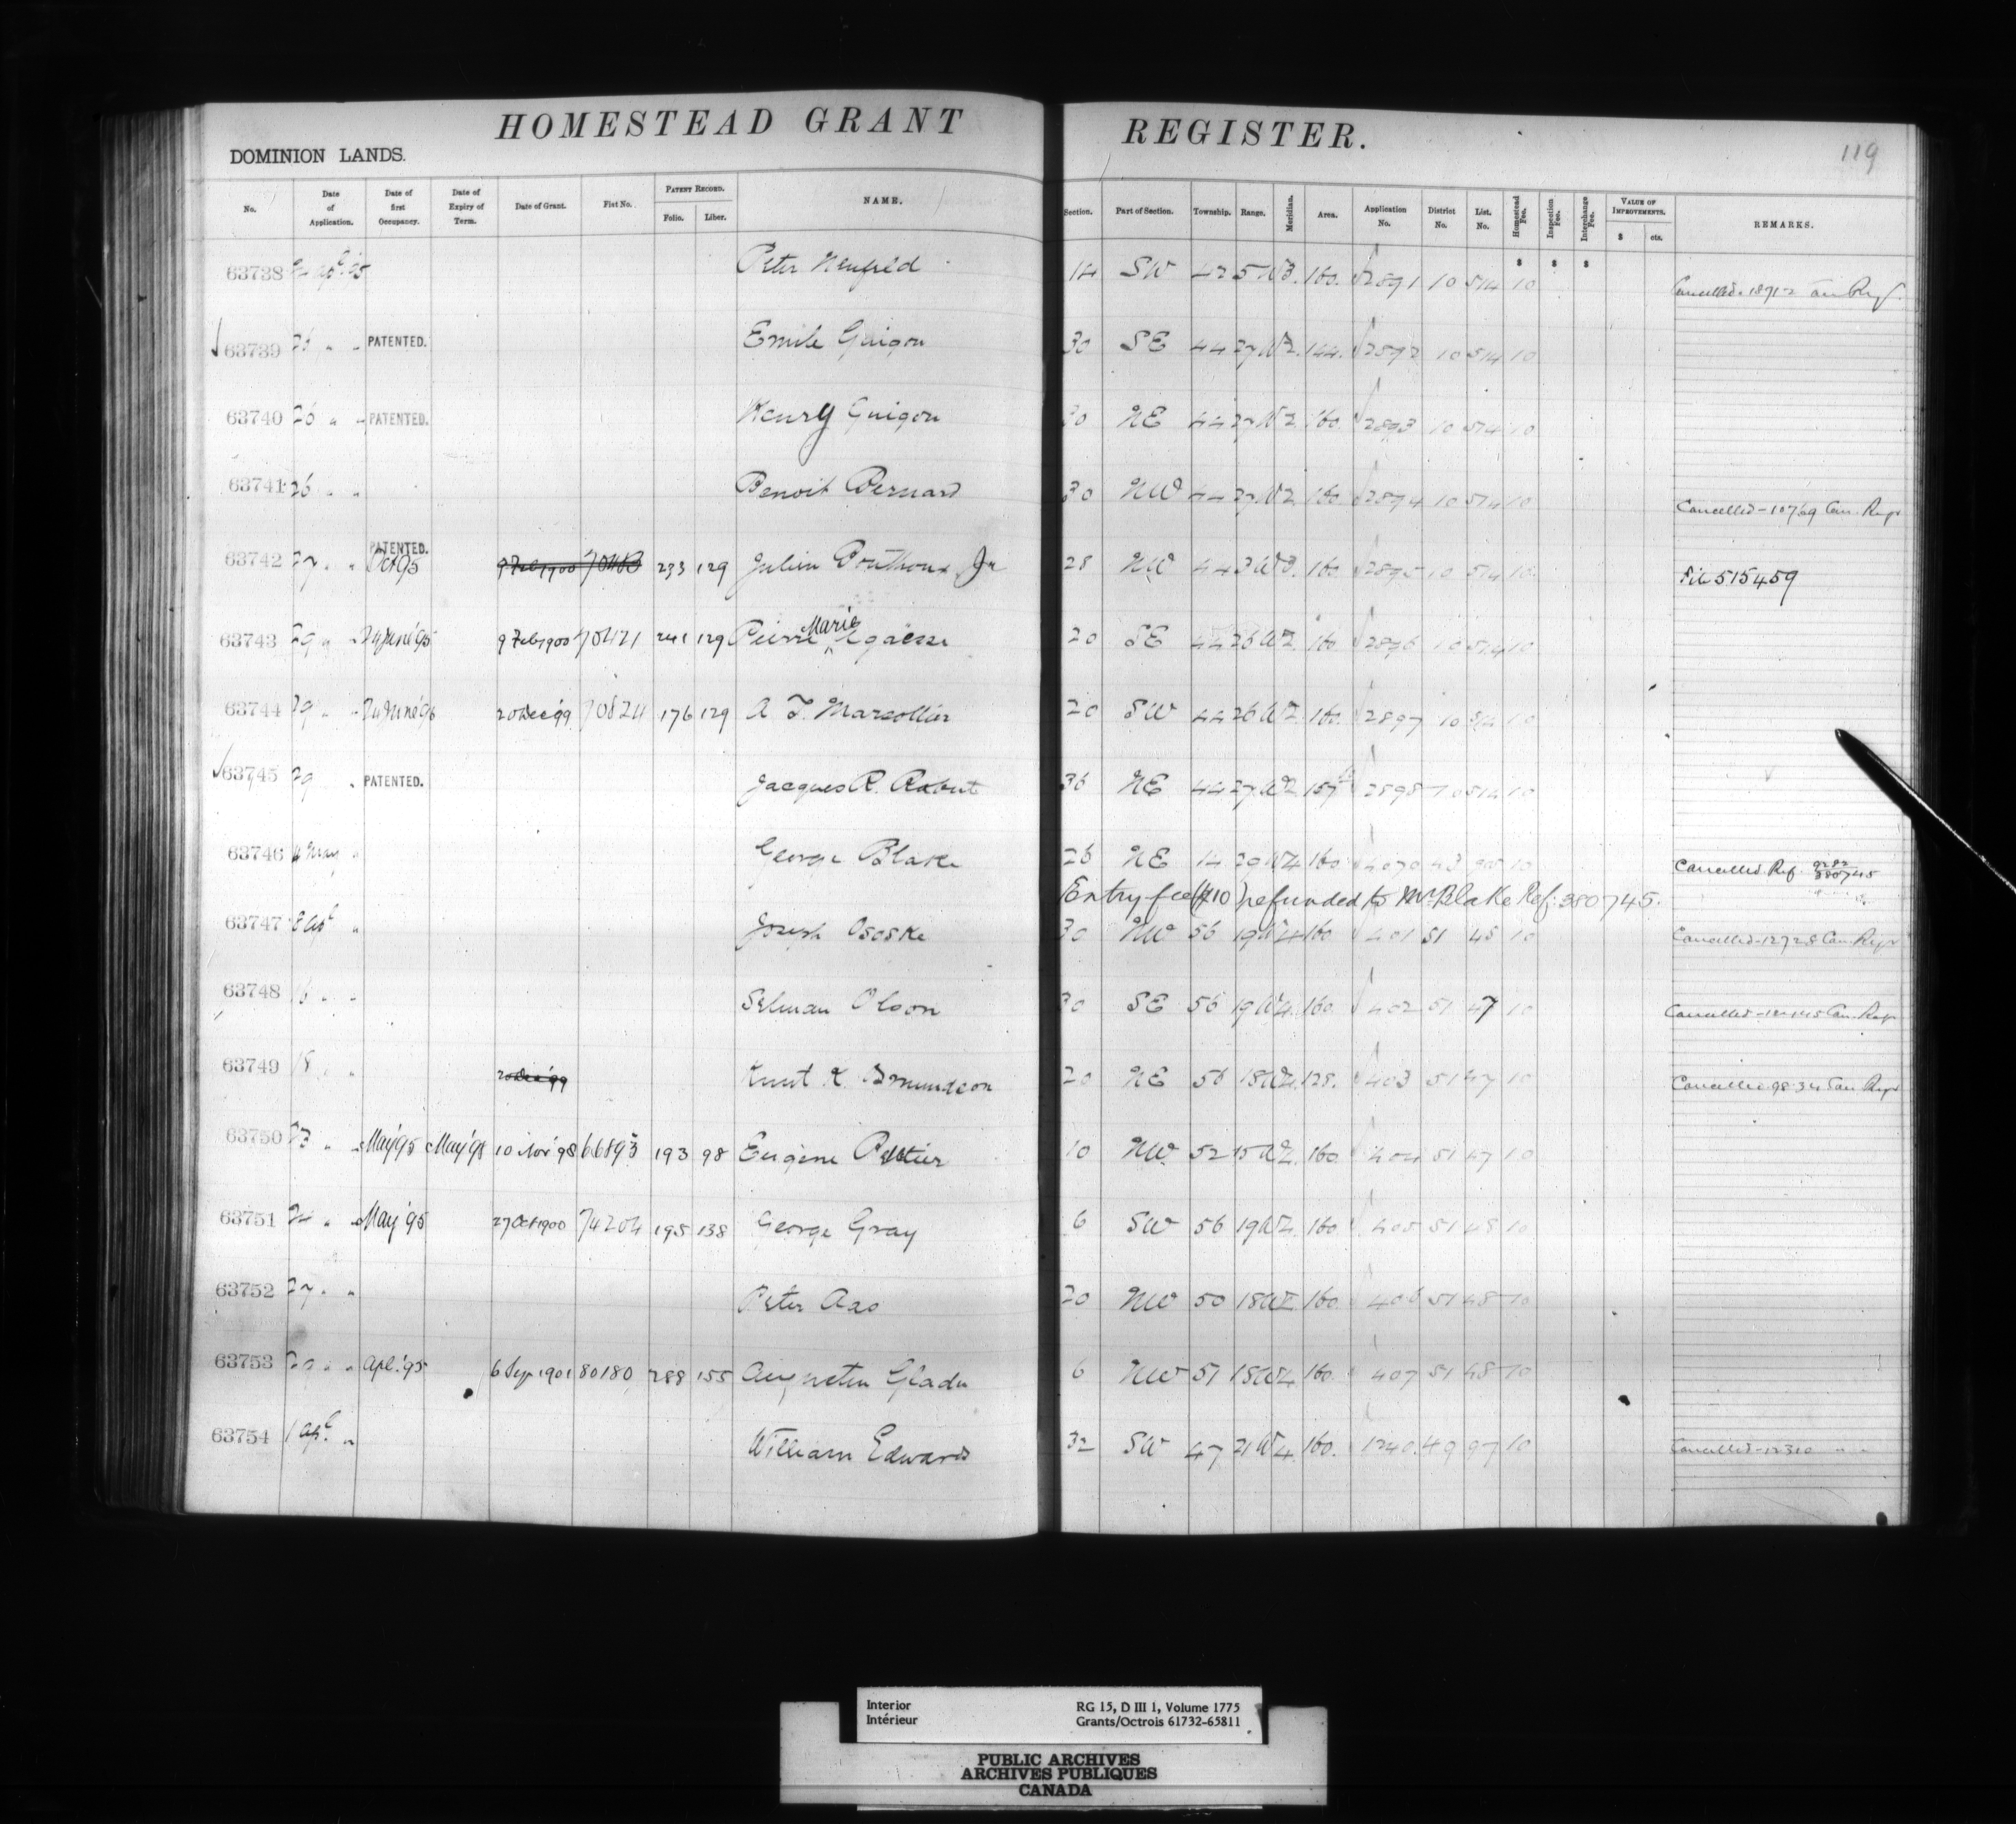 HOMESTEAD GRANT REGISTER.
119
DOMINION LANDS.
No. Date of Application. Date of first Occupancy. Date of Expiry of Term. Date of Grant. Fiat No. PATENT RECORD. Folio. Liber. NAME. Section. Part of Section. Township. Range. Meridian. Area. Application No. District No. List. No. Homestead Fee. Inspection Fee. Interchange Fee. VALUE OF IMPROVEMENTS. $ cts. REMARKS.
$ $ $
63738 Peter Neufeld 14 SW 42 5 W3. 160. 2891 10 514 10 Cancelled
63739 26 " " PATENTED. Emile Guigon 30 SE 44 27 W2. 144. 2892 10 514 10
63740 26 " " PATENTED. Henry Guigon 30 NE 44 27 W2. 160. 2893 10 514 10
63741 26 " " Benoit Bernard 30 NW 44 27 W2 160. 2894 10 514 10 Cancelled - 10769 Can. Regr
63742 27 " " PATENTED. Oct 95 9 Feb 1900 233 129 Julien Jr 28 NW 44 3 W3. 160. 2895 10 514 10 File 515459
63743 29 " " June '95 9 Feb 1900 70421 241 129 Pierre Marie Agaësse 20 SE 44 26 W2. 160. 2896 10 514 10
63744 29 " " June '96 20 Dec '99 70824 176 129 A F. Marsollier 20 SW 44 26 W2. 160. 2897 10 514 10
63745 29 " PATENTED. Jacques R. Rabut 36 NE 44 27 W2 157 2898 10 514 10
63746 4 May " George Blake 26 NE 14 29 W4 160 4070 43 10 Cancelled Ref. 380745
Entry fee ($10) refunded to Mr Blake Ref: 380745.
63747 8 Apl " JosephOsoske 30 NW 56 19 W4 160. 401 51 45 10 Cancelled - 12728 Can. Regr
63748 16 " " Selman Olson 30 SE 56 19 W4. 160. 402 51 47 10 Cancelled Can. Regr
63749 18 " " 20 Dec '99 Knut K. 20 NE 56 18 W4. 128. 403 51 47 10 Cancelled 9834 Can Regr
63750 23 " " May '95 May '98 10 Nov '98 66893 193 98 Eugene Pelletier 10 NW 52 15 W4. 160. 404 51 47 10
63751 24 " " May '95 27 Oct 1900 74204 195 138 George Gray 6 SW 56 19 W4. 160 405 51 48 10
63752 27 " " Peter Aas 20 NW 50 18 160. 406 51 48 10
63753 " " Apl. '95 6 Sep 1901 80180 288 155 Augustin Gladu 6 NW 51 18 W4. 160. 407 51 48 10
63754 1 Apl. " William Edwards 32 SW 47 21 W4 160. 1240. 49 97 10 Cancelled - 12310 " "
Interior RG 15, D III 1, Volume 1775
Intérieur Grants/Octrois 61732-65811
PUBLIC ARCHIVES
ARCHIVES PUBLIQUES
CANADA